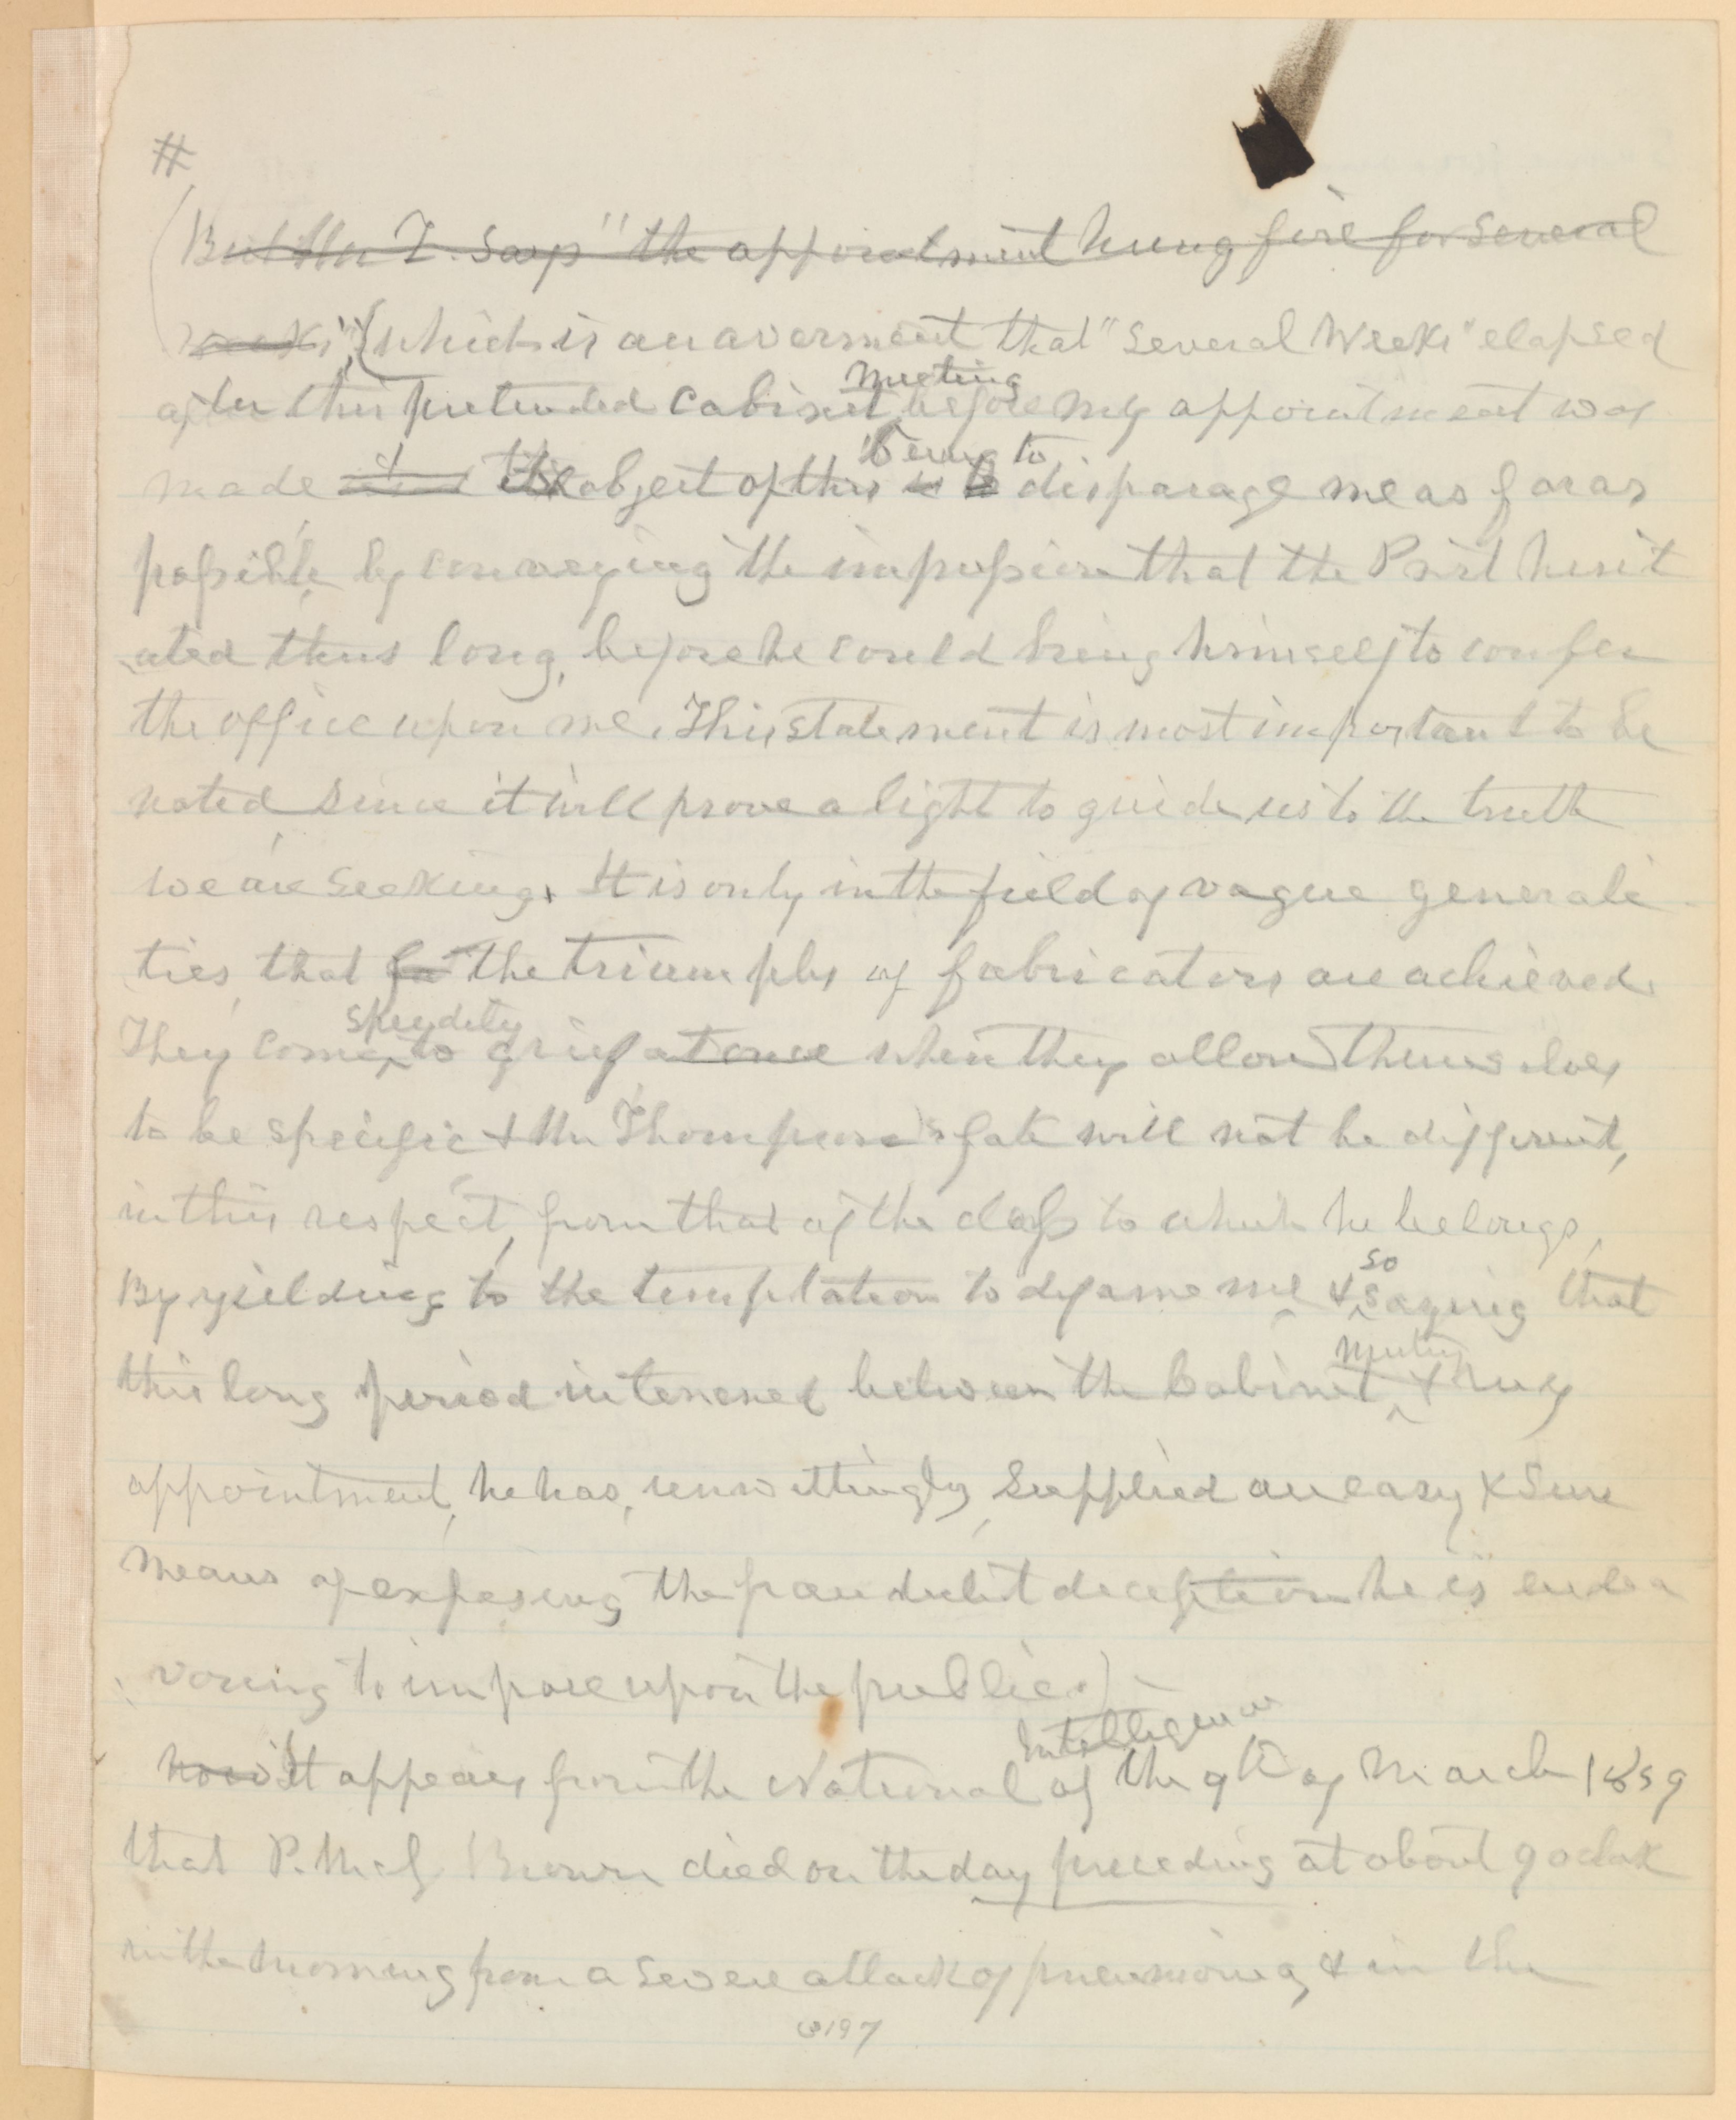 #
(But Mr T. says "the appointment hung fire for several
weeks" (which is an averment that "several weeks" elapsed
meeting
after this pretended cabinet, before my appointment was
being to
made the object of this is to disparage me as far as
possible, by conveying the impression that the Prsdt hesit
ated thus long, before he could bring himself to confer
the office upon me. This statement is most important to be
noted since it will prove a light to guide us to the truth
we are seeking. It is only in the field of vague generali
ties, that the triumphs of fabricators are achieved.
speedily
They come to grief at once when they allow themselves
to be specific & Mr Thompson's fate will not be different,
in this respect, from that of the class to which he belongs.
so
By yielding to the temptation to defame me & saying that
meeting
this long period intervened between the Cabinet & my
appointment, he has, unwittingly, supplied an easy & sure
means of exposing the fraudulent deception he is endea
voring to impose upon the public.)
Intelligencer
now it appears from the National of the 9th of March 1859
that P.M.G. Brown died on the day preceding at about 9 oclok
in the morning from a severe attack of pneumonia, & in the
3197